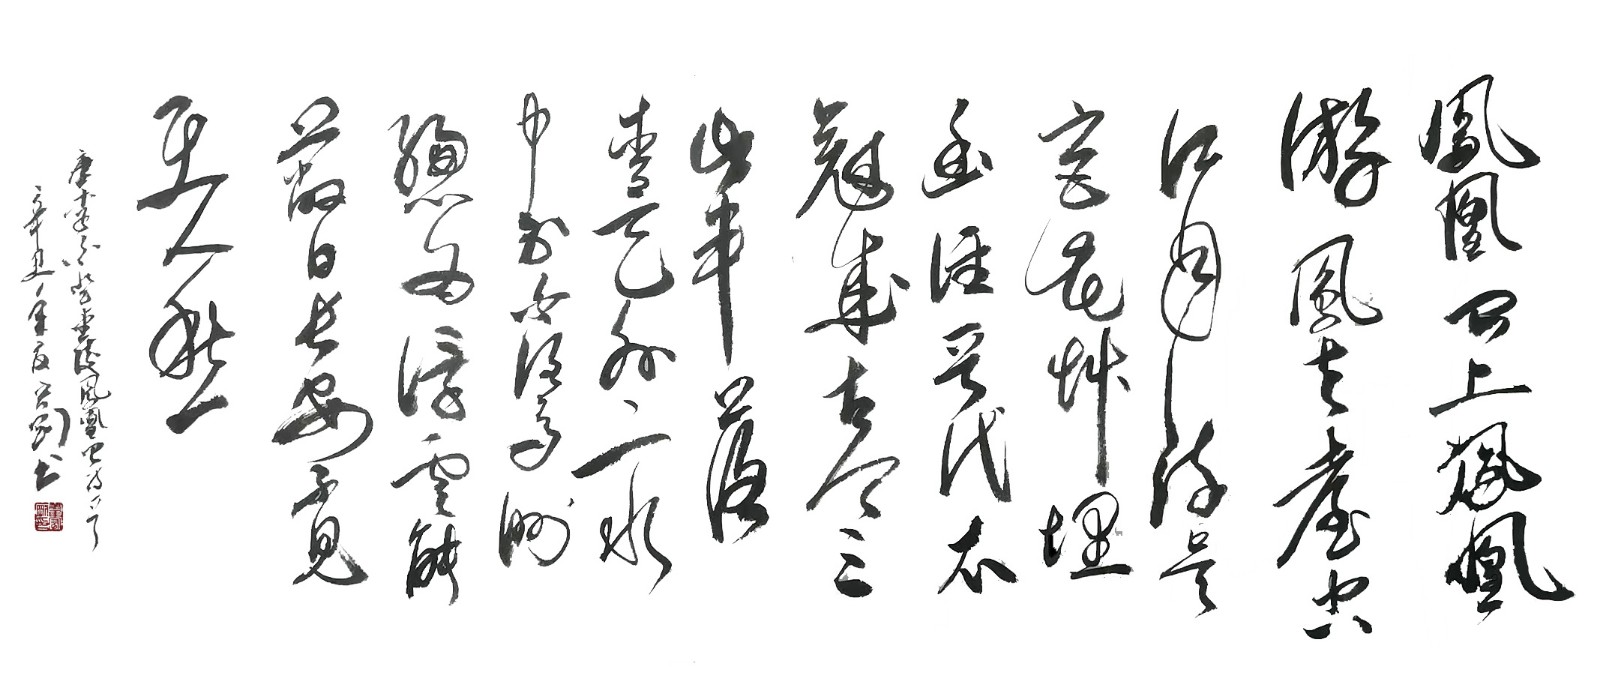 鳳凰台上鳳凰
游鳳去臺空
江自流吳
宮花草埋
幽徑晉代衣
冠成古丘三
山半落
青天外二水
中分白鷺洲
總為浮雲能
蔽日長安不見
使人愁
登金陵鳳凰台詩
辛丑年夏